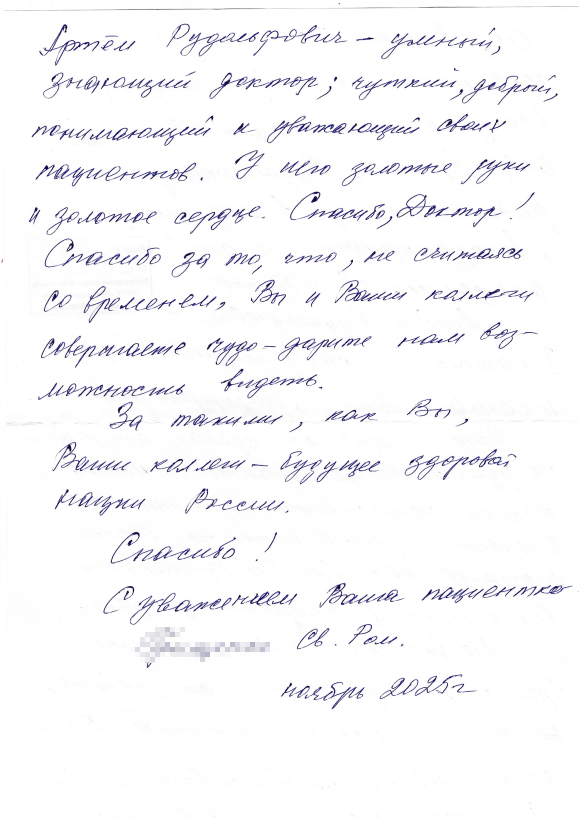 Артём Рудольфович – умный,
знающий доктор; чуткий, добрый,
понимающий и уважающий своих
пациентов. У него золотые руки
и золотое сердце. Спасибо, Доктор!
Спасибо за то, что, не считаясь
со временем, Вы и Ваши коллеги
совершаете чудо – дарите нам воз-
можность видеть.
За такими, как Вы,
Ваши коллеги – будущее здоровой
нации России.
Спасибо!
С уважением Ваша пациентка
Св. Ром.
ноябрь 2025 г